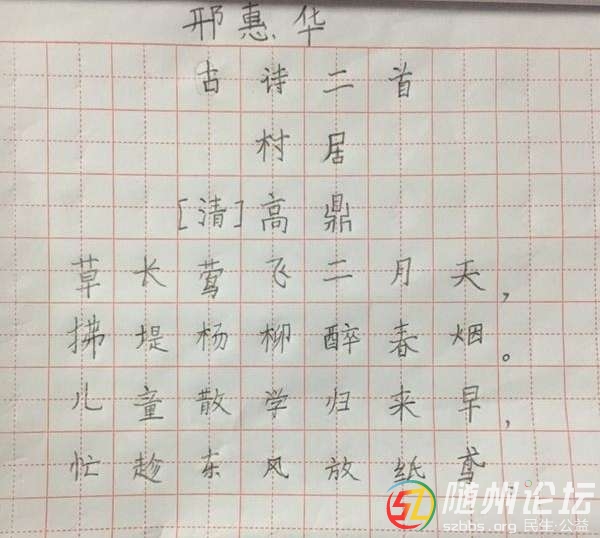 邢惠华
古诗二首
村居
[清]高鼎
草长莺飞二月天，
拂堤杨柳醉春烟。
儿童散学归来早，
忙趁东风放纸鸢。
随州论坛
szbbs.org 民生·公益